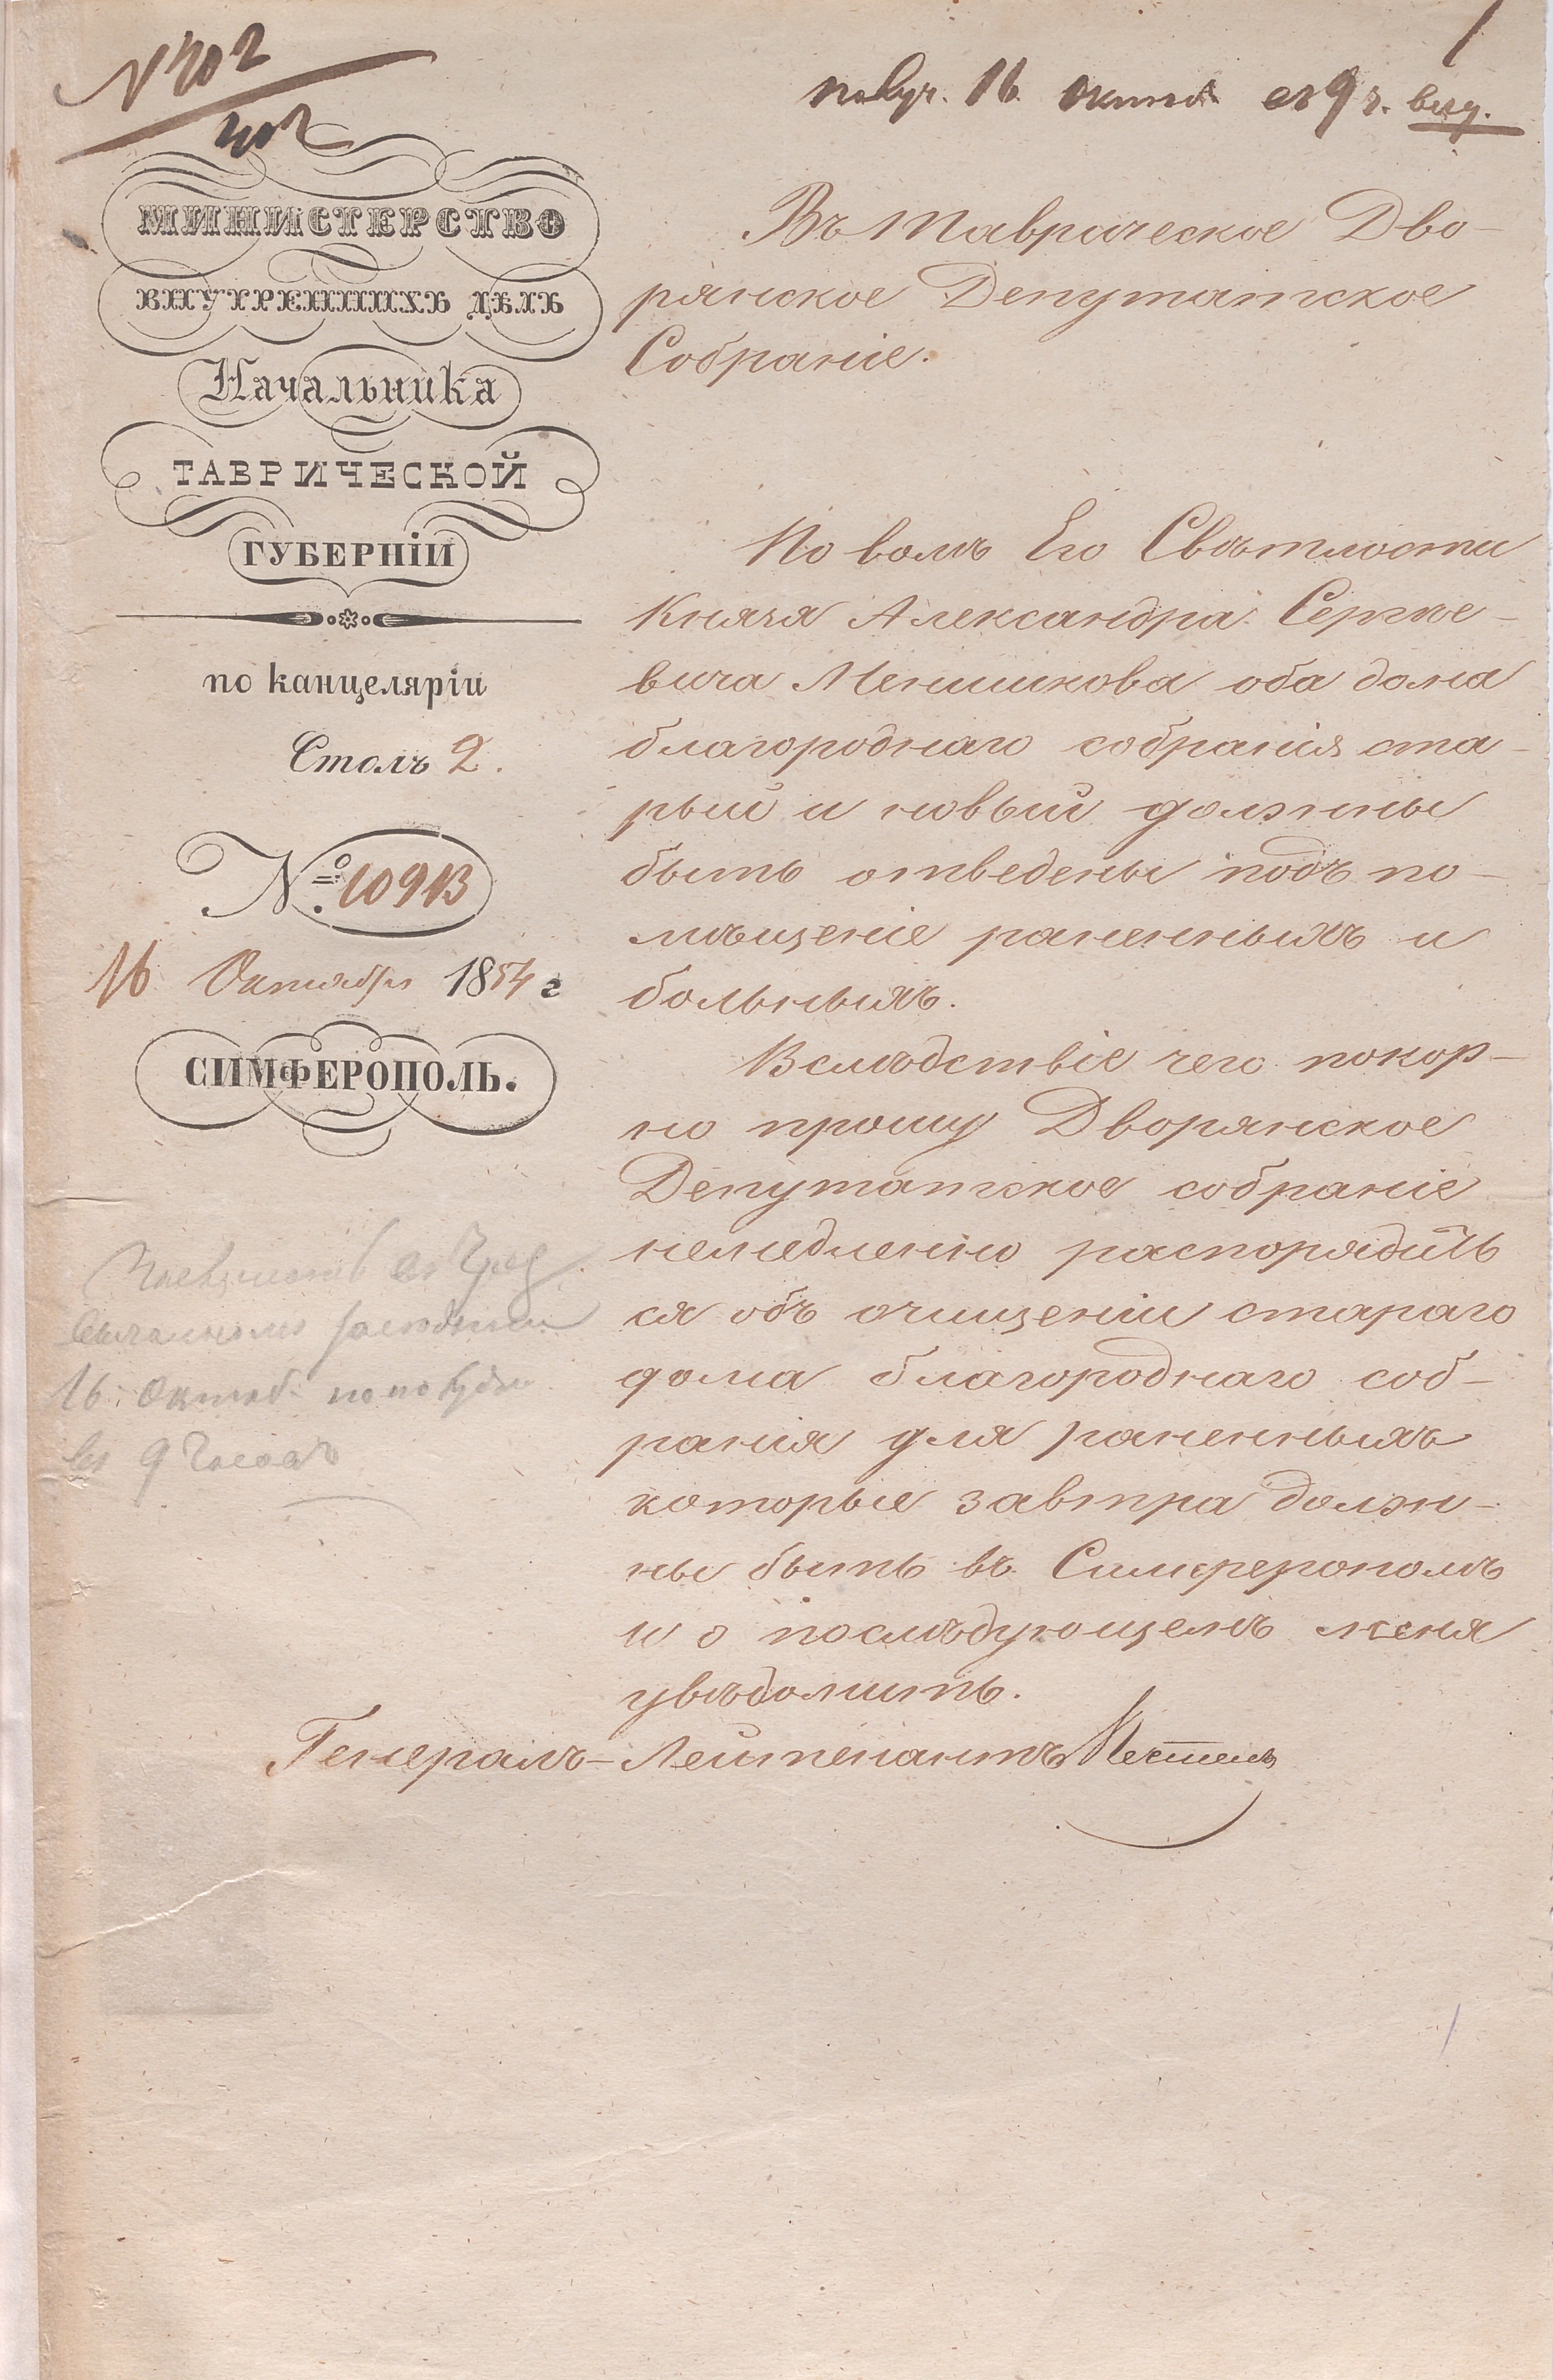 № 402
402
1
получ. 16 Октяб. въ 9 ч. веч.
МИНИСТЕРСТВО
ВНУТРЕННИХЪ ДѢЛЪ
Начальника
ТАВРИЧЕСКОЙ
ГУБЕРНІИ
по канцеляріи
Столъ 2.
№ 10913
16 Октября 1854 г
СИМФЕРОПОЛЬ.
Въ Таврическое Дво-
рянское Депутатское
Собраніе.
По волѣ Его Свѣтлости
Князя Александра Сергѣе-
вича Меншикова оба дома
благороднаго собранія ста-
рый и новый должны
быть отведены подъ по-
мѣщеніе раненныхъ и
больныхъ.
Вслѣдствіе чего покор-
но прошу Дворянское
Депутатское собраніе
немедленно распорядить
ся объ очищеніи стараго
дома благороднаго соб-
ранія для раненныхъ
которые завтра долж-
ны быть въ Симферополѣ
и о послѣдующемъ меня
увѣдомить.
Генералъ-Лейтенантъ Пестель
16 Октяб.
въ 9 часовъ